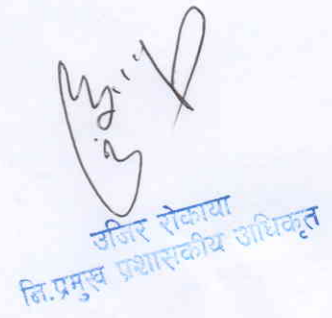 उजिर रोकाया
नि.प्रमुख प्रशासकीय अधिकृत